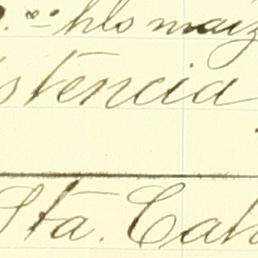 hlo maiz
stencia
Sta. Cat